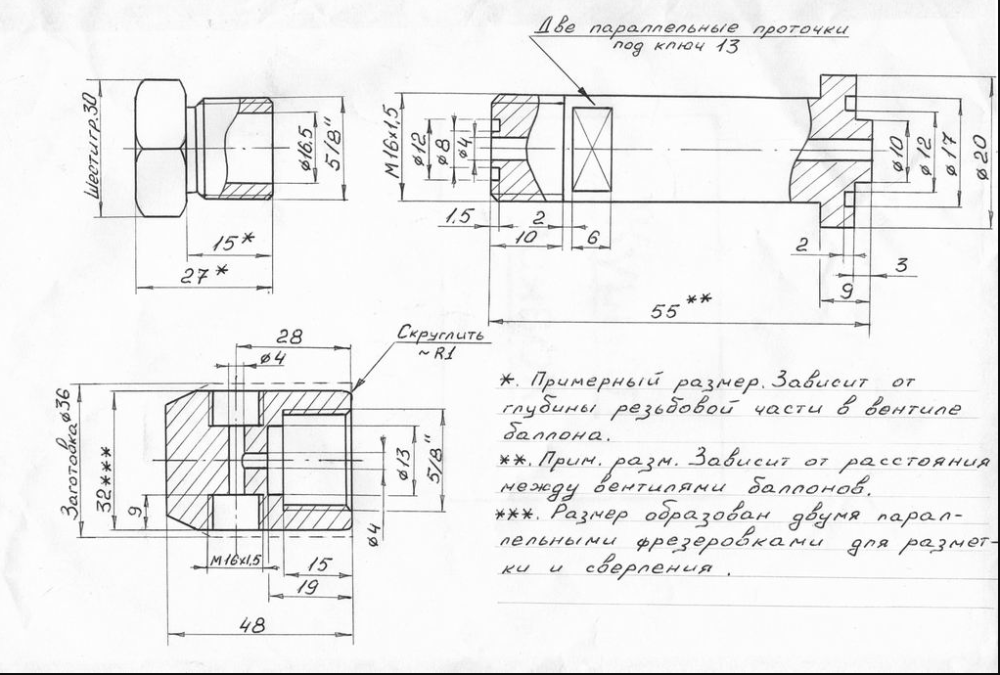 Две параллельные проточки
под ключ 13
Шестигр.30
ø16.5
5/8"
15*
27*
М16х1.5
ø12
ø8
ø4
1.5
2
10
6
55**
ø10
ø12
ø17
ø20
2
3
9
28
ø4
Скруглить
~R1
Заготовка ø36
32***
9
М16х1.5
ø13
5/8"
ø4
15
19
48
*. Примерный размер. Зависит от
глубины резьбовой части в вентиле
баллона.
**. Прим. разм. Зависит от расстояния
между вентилями баллонов.
***. Размер образован двумя парал-
лельными фрезеровками для размет-
ки и сверления.